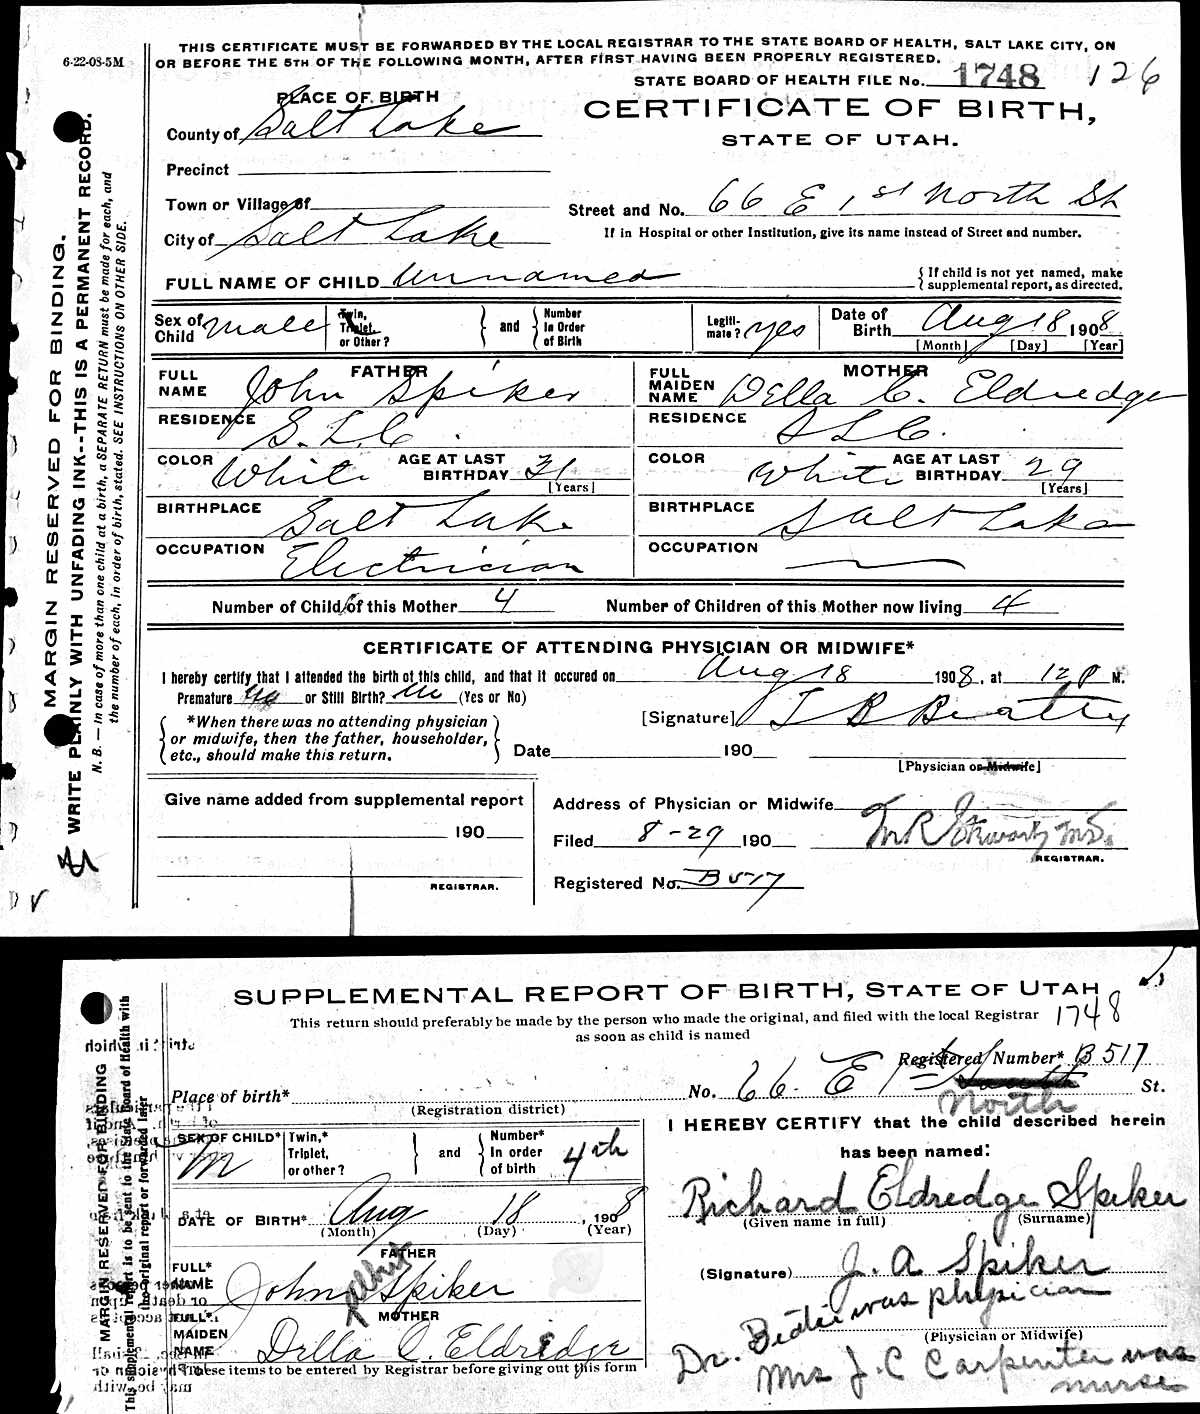 THIS CERTIFICATE MUST BE FORWARDED BY THE LOCAL REGISTRAR TO THE STATE BOARD OF HEALTH, SALT LAKE CITY, ON
6-22-08-5M
OR BEFORE THE 5TH OF THE FOLLOWING MONTH, AFTER FIRST HAVING BEEN PROPERLY REGISTERED.
STATE BOARD OF HEALTH FILE No. 1748 126
PLACE OF BIRTH
CERTIFICATE OF BIRTH,
County of Salt Lake
STATE OF UTAH.
Precinct
Town or Village of
Street and No. 66 E 1st North St
City of Salt Lake
If in Hospital or other Institution, give its name instead of Street and number.
FULL NAME OF CHILD Unnamed
{ If child is not yet named, make
supplemental report, as directed.
Sex of Child male
Twin, Triplet, or Other?
and
Number In Order of Birth
Legiti-mate? yes
Date of Birth Aug 18 1908
[Month] [Day] [Year]
FATHER
FULL NAME John Spiker
MOTHER
FULL MAIDEN NAME Della C. Eldredge
RESIDENCE S.L.C.
RESIDENCE S L C.
COLOR White AGE AT LAST BIRTHDAY 31 [Years]
COLOR White AGE AT LAST BIRTHDAY 29 [Years]
BIRTHPLACE Salt Lake
BIRTHPLACE Salt Lake
OCCUPATION Electrician
OCCUPATION
Number of Child of this Mother 4 Number of Children of this Mother now living 4
CERTIFICATE OF ATTENDING PHYSICIAN OR MIDWIFE*
I hereby certify that I attended the birth of this child, and that it occured on Aug 18 1908, at 12 P M.
Premature no or Still Birth? no (Yes or No)
[Signature] T B Beatty
*When there was no attending physician
or midwife, then the father, householder,
etc., should make this return.
Date 190
[Physician or Midwife]
Give name added from supplemental report
190
REGISTRAR.
Address of Physician or Midwife
Filed 8-29 190
M R Stewart M.D.
REGISTRAR.
Registered No. B 517
MARGIN RESERVED FOR BINDING.
WRITE PLAINLY WITH UNFADING INK--THIS IS A PERMANENT RECORD.
N. B. — In case of more than one child at a birth, a SEPARATE RETURN must be made for each, and
the number of each, in order of birth, stated. SEE INSTRUCTIONS ON OTHER SIDE.
SUPPLEMENTAL REPORT OF BIRTH, STATE OF UTAH
This return should preferably be made by the person who made the original, and filed with the local Registrar
as soon as child is named
1748
Registered Number* B 517
Place of birth*
No. 66. E 1st North St.
(Registration district)
I HEREBY CERTIFY that the child described herein
has been named:
SEX OF CHILD* M
Twin,* Triplet, or other?
and
Number* In order of birth 4th
Richard Eldredge Spiker
(Given name in full) (Surname)
DATE OF BIRTH* Aug 18, 1908
(Month) (Day) (Year)
FATHER
FULL* NAME John Spiker
(Signature) J. A Spiker
MOTHER
FULL* MAIDEN NAME Della C. Eldredge
Dr. Beatie was physician
(Physician or Midwife)
Mrs J. C Carpenter was
nurse
These items to be entered by Registrar before giving out this form
MARGIN RESERVED FOR BINDING
This supplemental report is to be sent to the State Board of Health with
the original report or forwarded later